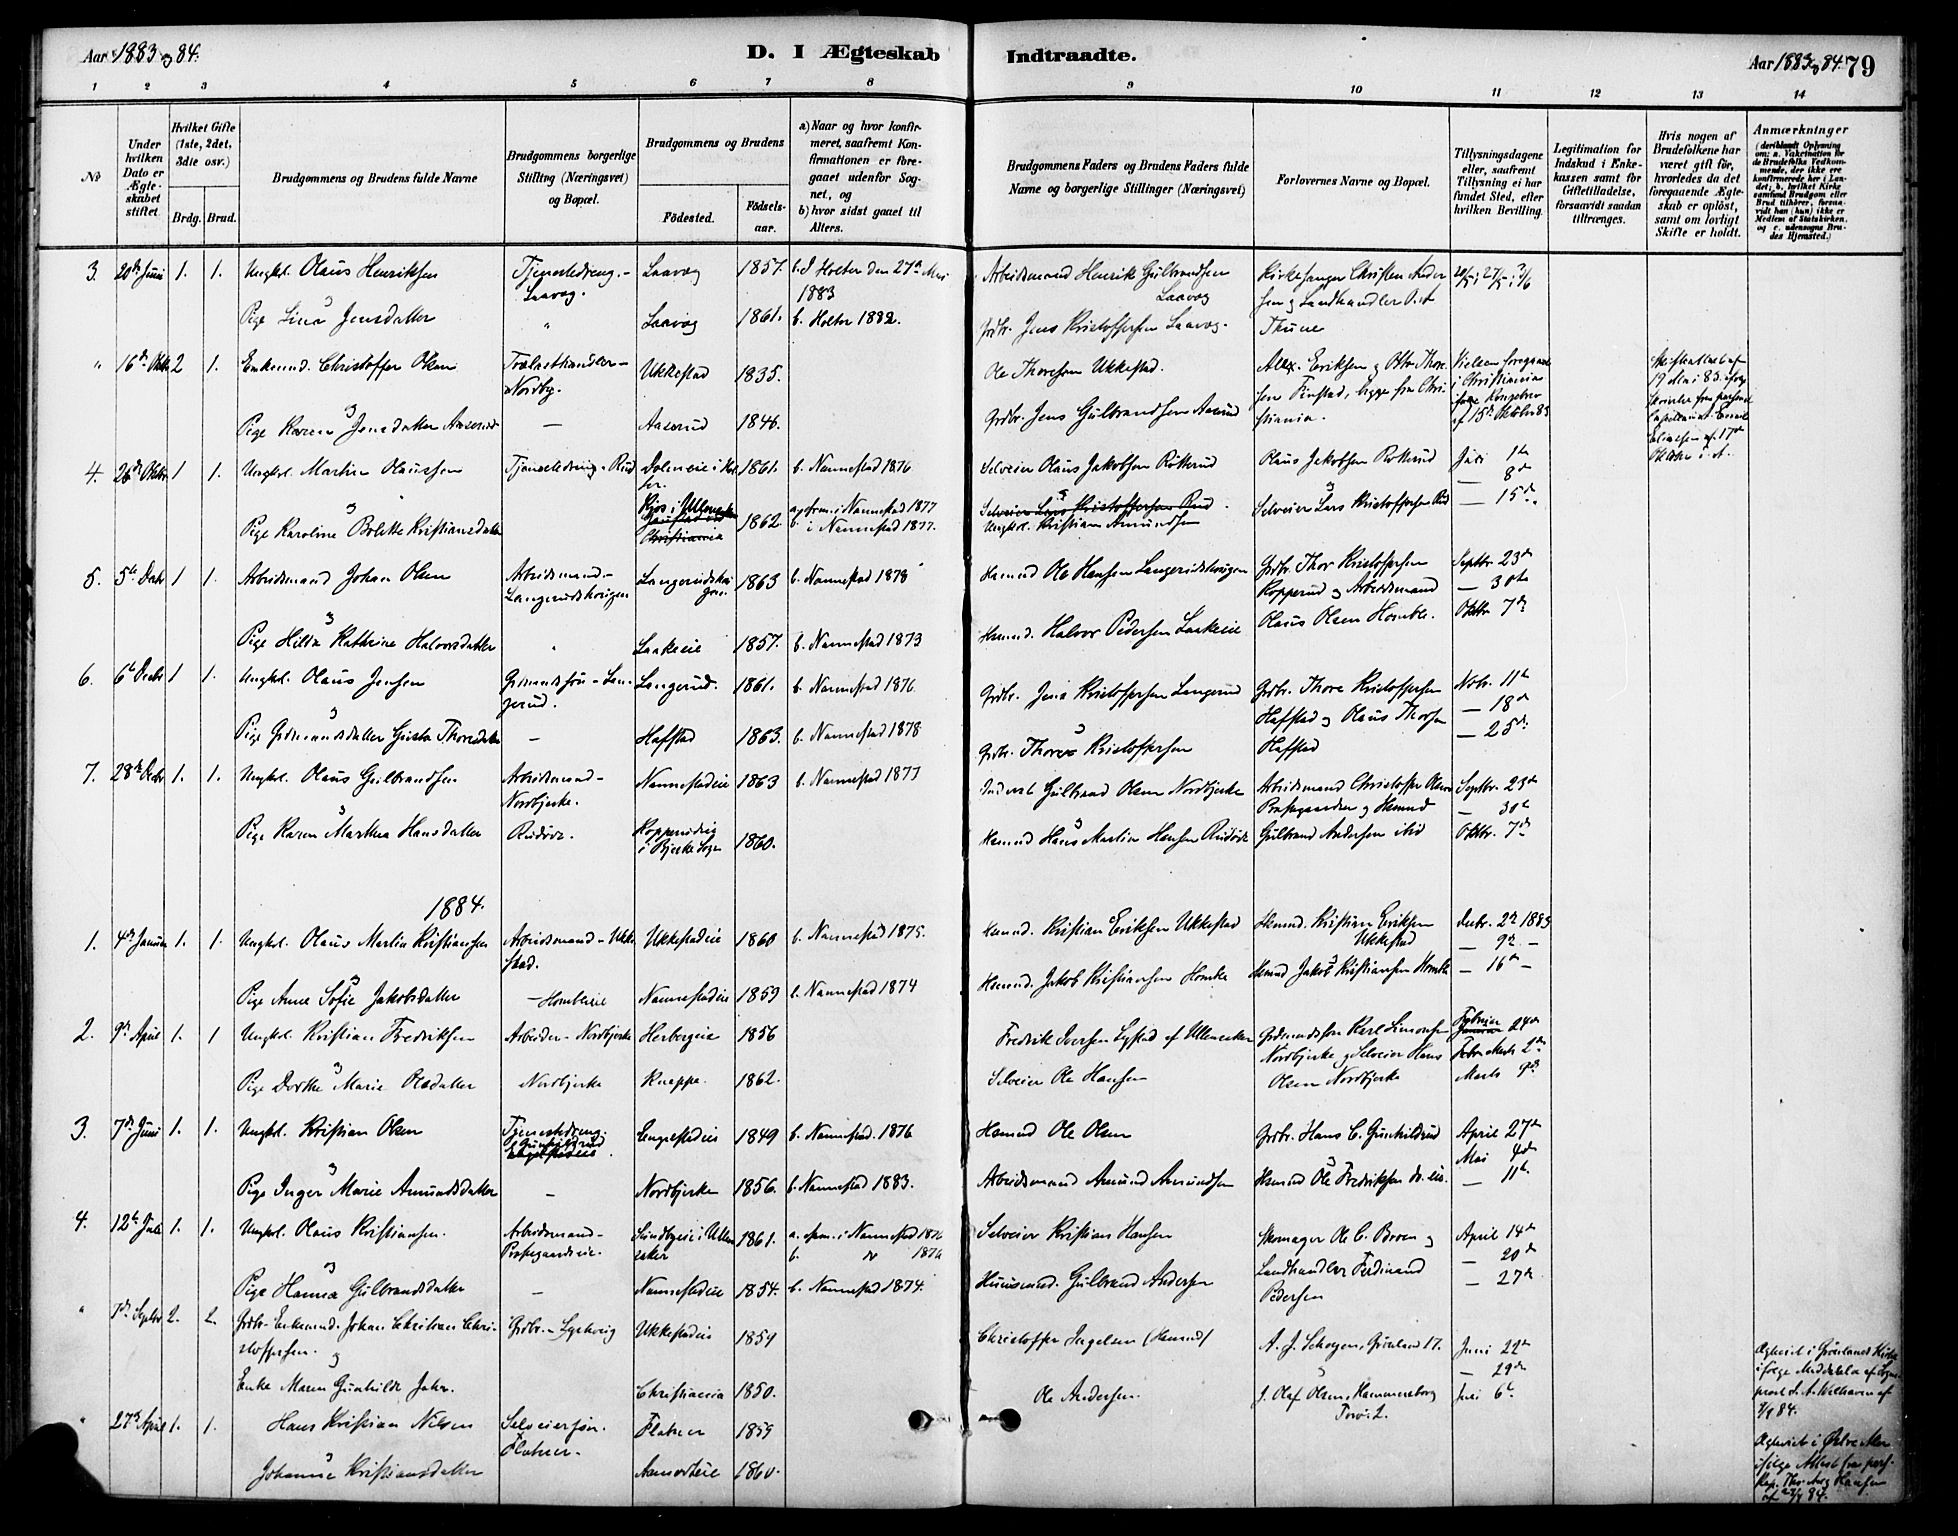 Aar 1883 og 84.
D. I Ægteskab
Indtraadte.
Aar 1883 og 84. 79
1 2 3 4 5 6 7 8 9 10 11 12 13 14
No
Under hvilken Dato er Ægteskabet stiftet.
Hvilket Gifte (1ste, 2det, 3die osv.)
Brdg. Brud.
Brudgommens og Brudens fulde Navne
Brudgommens borgerlige Stilling (Næringsvei) og Bopæl.
Brudgommens og Brudens
Fødested.
Fødselsaar.
a) Naar og hvor konfirmeret, saafremt Konfirmationen er foregaaet udenfor Sognet, og
b) hvor sidst gaaet til Alters.
Brudgommens Faders og Brudens Faders fulde Navne og borgerlige Stillinger (Næringsvei)
Forlovernes Navne og Bopæl.
Tillysningsdagene eller, saafremt Tillysning ei har fundet Sted, efter hvilken Bevilling.
Legitimation for Indskud i Enkekassen samt for Giftetilladelse, forsaavidt saadan tiltrænges.
Hvis nogen af Brudefolkene har været gift før, hvorledes da det foregaaende Ægteskab er opløst, samt om lovligt Skifte er holdt.
Anmærkninger
(deriblandt Oplysning om: a. Vakcination for de Brudefolks Vedkommende, der ikke ere konfirmerede her i Landet; b. hvilket Kirkesamfund Brudgom eller Brud tilhører, forsaavidt han (hun) ikke er Medlem af Statskirken, og c. udensogns Brudes Hjemsted.)
3. 20de Juni 1. 1. Ungkl. Olaus Henriksen Tjenestedreng - Laavog. Laavog 1857. b. I Holter den 27de Mai 1883 Arbeidsmand Henrik Gulbrandsen Laavog Kirkesanger Christen Andersen og Landhandler O. A. Thune 20/5 27/5 3/6
og
Pige Lina Jensdatter " Laavog 1861. b. Holter 1882. Grdbr. Jens Kristoffersen Laavog.
" 16de Oktbr 2 1. Enkemd. Christoffer Olsen Trælasthandler - Nordby. Ukkestad 1835. Ole Thoresen Ukkestad. Alex. Eriksen og Otto Thoresen Finstad, begge fra Christiania. Vielsen foregaaet i Christiania ifølge Kongebrev af 15de Oktober 83
og
Pige Karen Jensdatter Aaserud — Aaserud 1846. Grdbr. Jens Gulbrandsen Aaserud
4. 26de Oktbr 1 1. Ungkl. Martin Olaussen Tjenestedreng - Rud Dalseie i Holter. 1861. b. Nannestad 1876 Selveier Olaus Jakobsen Rotterud Olaus Jakobsen Rotterud Juli 1ste — 8de — 15de
og
Pige Karoline Bolette Kristiansdatter Kjos i Ullensaker Christiania 1862. a. Kfrm. i Nannestad 1877 b. i Nannestad 1877. Selveier Lars Kristoffersen Rud. Ungkl. Kristian Amundsen Selveier Lars Kristoffersen Rud
5. 5te Decbr 1 1. Arbeidsmand Johan Olsen Arbeidsmand - Langerudskrigen Langerudskrigen. 1863 b. Nannestad 1878 Husmd. Ole Hansen Langerudskrigen Grdbr. Thor Kristoffersen Kopperud og Arbeidsmand Olaus Olsen Homble. Septbr. 23de — 30te Oktbr 7de
og
Pige Hilda Kathrine Halvorsdatter " Laakeeie 1857. b. Nannestad 1873 Husmd. Halvor Pedersen Laakeeie
6. 6te Decbr 1 1. Ungkl. Olaus Jensen Grdmandssøn - Langerud. Langerud. 1861. b. Nannestad 1876. Grdbr. Jens Kristoffersen Langerud Grdbr. Thore Kristoffersen Hafstad og Olaus Thorsen Hafstad Novbr. 11te — 18de — 25de
og
Pige Grdmandsdatter Gusta Thoresdatter — Hafstad 1863. b. Nannestad 1878 Grdbr. Thore Kristoffersen
7. 28de Decbr 1. 1. Ungkl. Olaus Gulbrandsen Arbeidsmand - Nordbjerke. Nannestadeie 1863 b. Nannestad 1877 Inderst Gulbrand Olsen Nordbjerke Arbeidsmand Christoffer Olsen Præstegaarden og Husmd Gulbrand Andersen ibid Septbr. 23de — 30te Oktbr. 7de
og
Pige Karen Martha Hansdatter Rudøde. Kopperudeie i Bjerke Sogn 1860. Husmd Hans Martin Hansen Rudøde
1884.
1. 4de Januar 1. 1. Ungkl. Olaus Martin Kristiansen Arbeidsmand - Ukkestad. Ukkestadeie 1860 b. Nannestad 1875. Husmd. Kristian Eriksen Ukkestad Husmd. Kristian Eriksen Ukkestad Decbr. 2den 1883 — 9de — — 16de —
og
Pige Anne Sofie Jakobsdatter — Hombleeie Nannestadeie 1859 b. Nannestad 1874 Husmd. Jakob Kristiansen Homble Husmd Jakob Kristiansen Homble
2. 9de April 1. 1 Ungkl. Kristian Fredriksen Arbeider - Nordbjerke Herbergeie 1856 Fredrik Iversen Lystad af Ullensaker Grdmandssøn Karl Simonsen Nordbjerke og Selveier Hans Olsen Nordbjerke Februar 24de Marts 2den Marts 9de
og
Pige Dorthe Marie Olsdatter Nordbjerke Knappe. 1862. Selveier Ole Hansen
3. 7de Juni 1. 1. Ungkl. Kristian Olsen Tjenestedreng. Gunhildrud Engelstadeie 1849 b. Nannestad. 1876 Husmd Ole Olsen Grdbr. Hans C. Gunhildrud April 27de Mai 4de — 11te
og
Pige Inger Marie Amundsdatter — Nordbjerke 1856. b. Nannestad 1883. Arbeidsmand Amund Amundsen Husmd Ole Fredriksen
4. 12te Juli 1. 1. Ungkl. Olaus Kristiansen. Arbeidsmand - Præstegaardseie. Sundbyeie i Ullensaker 1861. a. Kfrm. i Nannestad 1876 b. do 1876 Selveier Kristian Hansen Skomager Ole C. Broen og Landhandler Ferdinand Pedersen April 14de — 20de — 27de
og
Pige Hanna Gulbrandsdatter — Nannestadeie 1854. b. Nannestad 1874. Huusmd. Gulbrand Andersen
" 7de Septbr 2. 2. Grdbr. Enkemd. Johan Christian Christoffersen. Grdbr. - Lysherig Ukkestadeie 1859 Christoffer Ingelsen (Husmd) A. J. Schoyen, Grønland 17. Juni 22de — 29de
og
Enke Maren Gunhilde Johs. Christiania 1850. Ole Andersen. J. Olaf Olsen, Hammersborg Torv. 2. Juli 6te
" 27de April 1. 1. Hans Kristian Nilsen Selveiersøn. Flatner. Flatner 1859
Johanne Kristiansdatter Aamodteie 1860.
Skifteattest af 19 Mai i 83.
Ægteviet i Grønlands Kirke ifølge Meddelelse af Sogneprest
7/9 84.
Ægteviet i Østre Aker ifølge Attest fra pers. Kap. Thv. Aug. Hansen af 27/4 84.